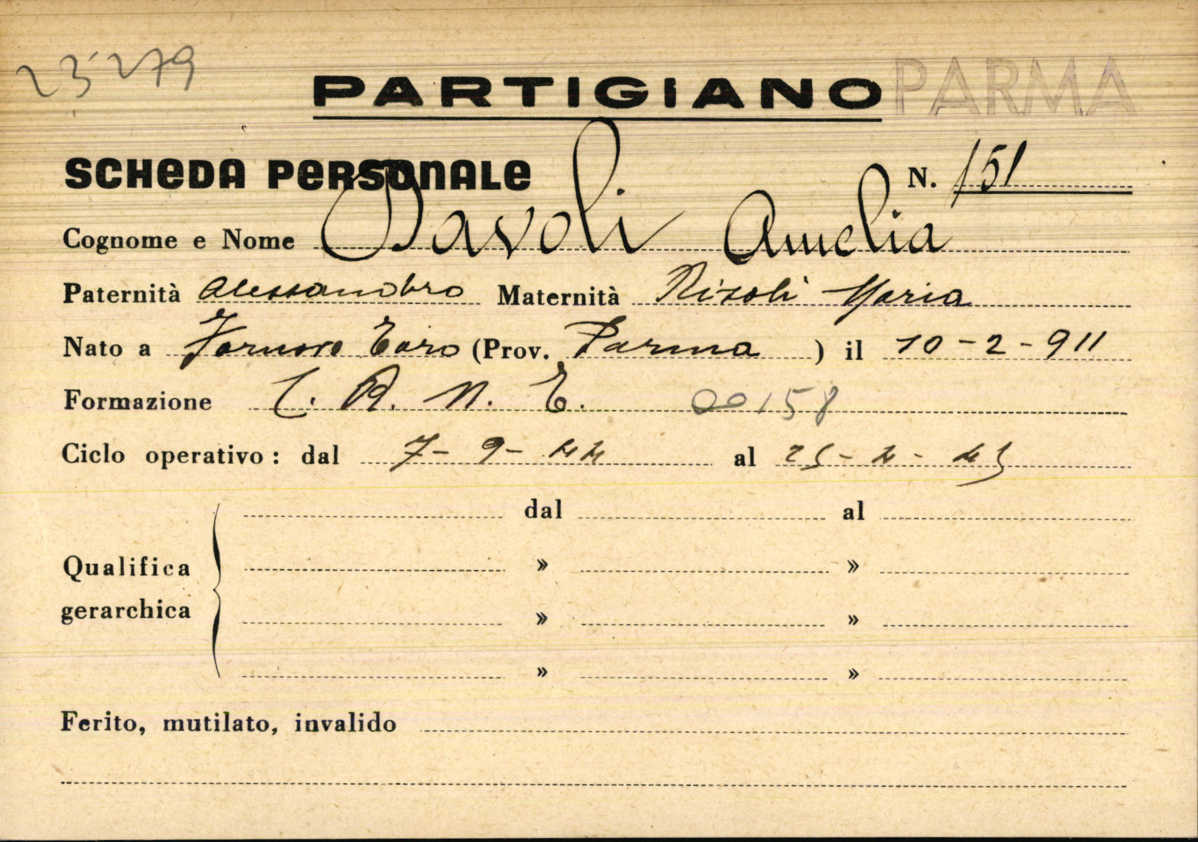 23279
PARTIGIANO PARMA
SCHEDA PERSONALE N. 151
Cognome e Nome Davoli Amelia
Paternità Alessandro Maternità Risoli Maria
Nato a Fornovo Taro (Prov. Parma ) il 10-2-911
Formazione C. R. N. E. 00158
Ciclo operativo: dal 7-9-44 al 25-4-45
dal al
Qualifica » »
gerarchica » »
» »
Ferito, mutilato, invalido